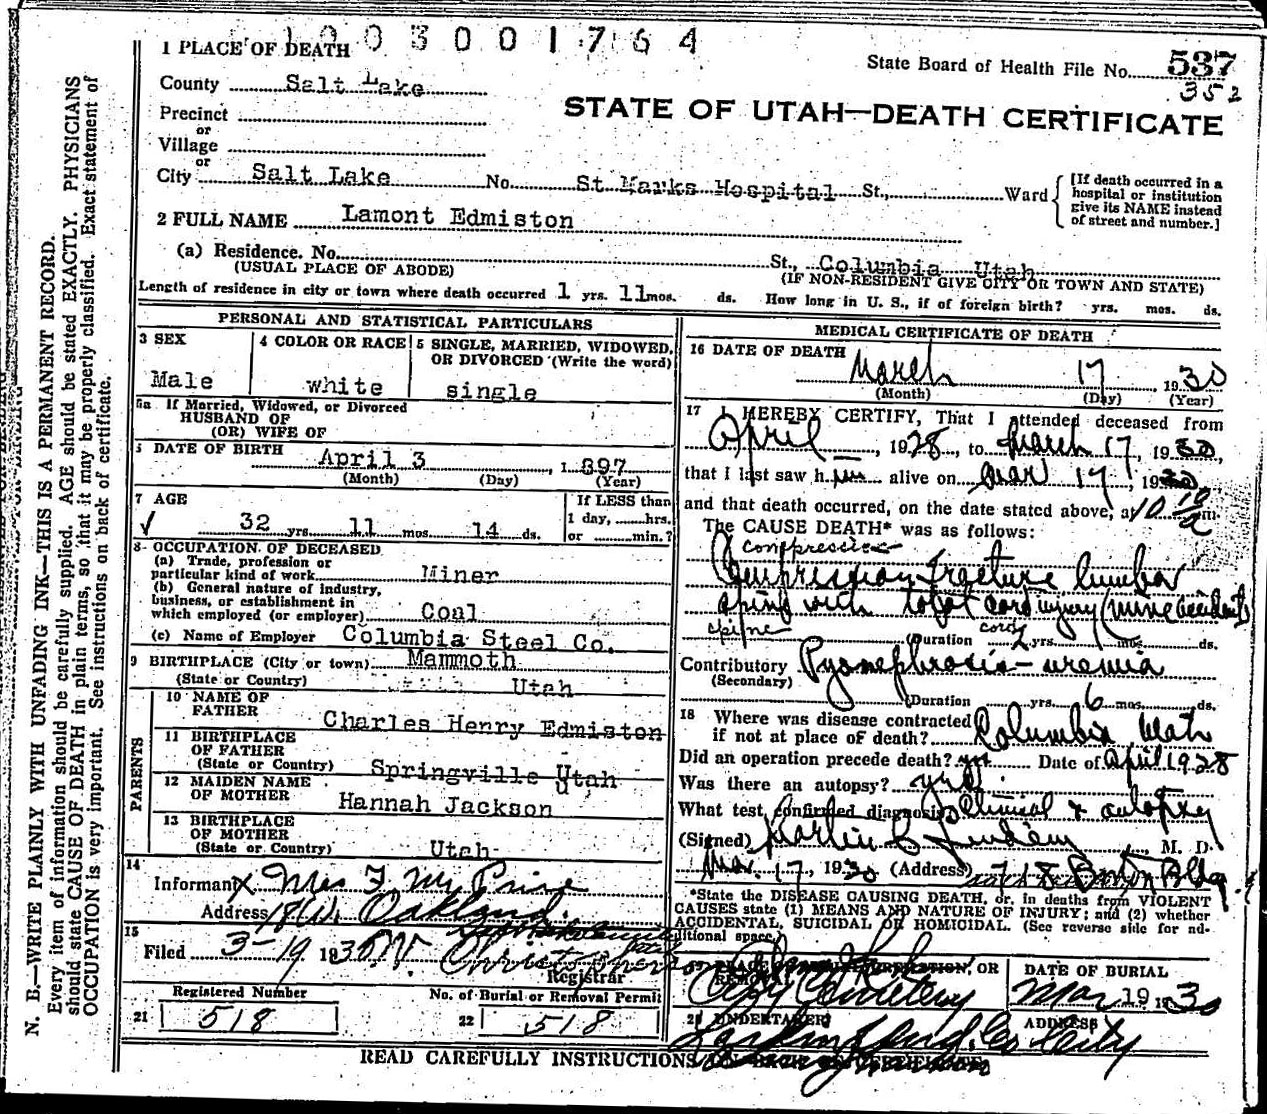 1003001764
1 PLACE OF DEATH
State Board of Health File No. 537
352
County Salt Lake
STATE OF UTAH—DEATH CERTIFICATE
Precinct
or
Village
or
City Salt Lake No. St Marks Hospital St., Ward
[If death occurred in a
hospital or institution
give its NAME instead
of street and number.]
2 FULL NAME Lamont Edmiston
(a) Residence. No. St., Columbia Utah
(USUAL PLACE OF ABODE) (IF NON-RESIDENT GIVE CITY OR TOWN AND STATE)
Length of residence in city or town where death occurred 1 yrs. 11 mos. ds. How long in U. S., if of foreign birth? yrs. mos. ds.
N. B.—WRITE PLAINLY WITH UNFADING INK—THIS IS A PERMANENT RECORD.
Every item of information should be carefully supplied. AGE should be stated EXACTLY. PHYSICIANS
should state CAUSE OF DEATH in plain terms, so that it may be properly classified. Exact statement of
OCCUPATION is very important. See instructions on back of certificate.
PERSONAL AND STATISTICAL PARTICULARS
3 SEX
Male
4 COLOR OR RACE
white
5 SINGLE, MARRIED, WIDOWED,
OR DIVORCED (Write the word)
single
5a If Married, Widowed, or Divorced
HUSBAND OF
(OR) WIFE OF
DATE OF BIRTH April 3, 1897
(Month) (Day) (Year)
7 AGE
32 yrs. 11 mos. 14 ds.
If LESS than
1 day, hrs.
or min.?
8 OCCUPATION OF DECEASED
(a) Trade, profession or
particular kind of work Miner
(b) General nature of industry,
business, or establishment in
which employed (or employer) Coal
(c) Name of Employer Columbia Steel Co.
9 BIRTHPLACE (City or town) Mammoth
(State or Country) Utah
PARENTS
10 NAME OF
FATHER Charles Henry Edmiston
11 BIRTHPLACE
OF FATHER
(State or Country) Springville Utah
12 MAIDEN NAME
OF MOTHER Hannah Jackson
13 BIRTHPLACE
OF MOTHER
(State or Country) Utah
14
Informant X Mrs
Address Oakland
15
Filed 3-19 1930
Registrar
Registered Number
21 518
No. of Burial or Removal Permit
22 518
MEDICAL CERTIFICATE OF DEATH
16 DATE OF DEATH March 17, 1930
(Month) (Day) (Year)
17 I HEREBY CERTIFY, That I attended deceased from
April, 1928, to March 17, 1930,
that I last saw him alive on Mar 17, 1930
and that death occurred, on the date stated above, at 10 10 a m.
The CAUSE DEATH* was as follows:
compression
Compression fracture lumbar
spine with total cord injury (mine accident)
spine cord
(Duration 2 yrs. mos. ds.
Contributory Pyonephrosis - uremia
(Secondary)
(Duration yrs. 6 mos. ds.
18 Where was disease contracted
if not at place of death? Columbia Utah
Did an operation precede death? yes Date of April 1928
Was there an autopsy? yes.
What test confirmed diagnosis? Clinical & autopsy
(Signed) M. D.
Mar. 17, 1930 (Address) 718 Boston Bldg.
*State the DISEASE CAUSING DEATH, or, in deaths from VIOLENT
CAUSES state (1) MEANS AND NATURE OF INJURY; and (2) whether
ACCIDENTAL, SUICIDAL OR HOMICIDAL. (See reverse side for ad-
ditional space.)
City Cemetery
DATE OF BURIAL
Mar 19 1930
UNDERTAKER
City
ADDRESS
READ CAREFULLY INSTRUCTIONS ON BACK OF CERTIFICATE